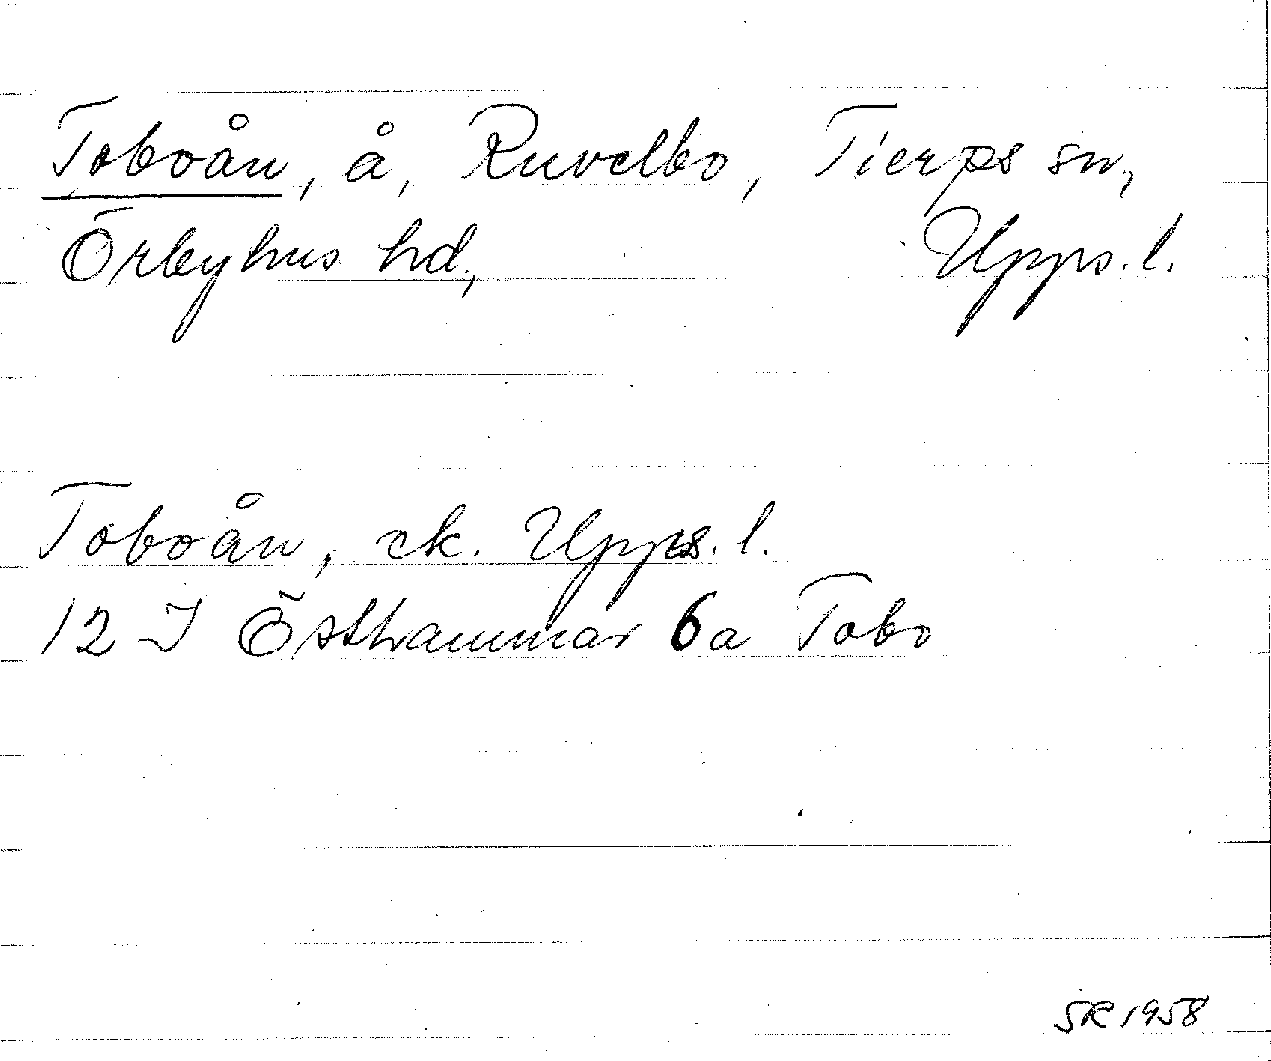 Toboån, å, Ruvelbo, Tierps sn,
Örbyhus hd, Upps. l.
Toboån, ek. Upps. l.
12 I Östhammar 6a Tobo
SR 1958